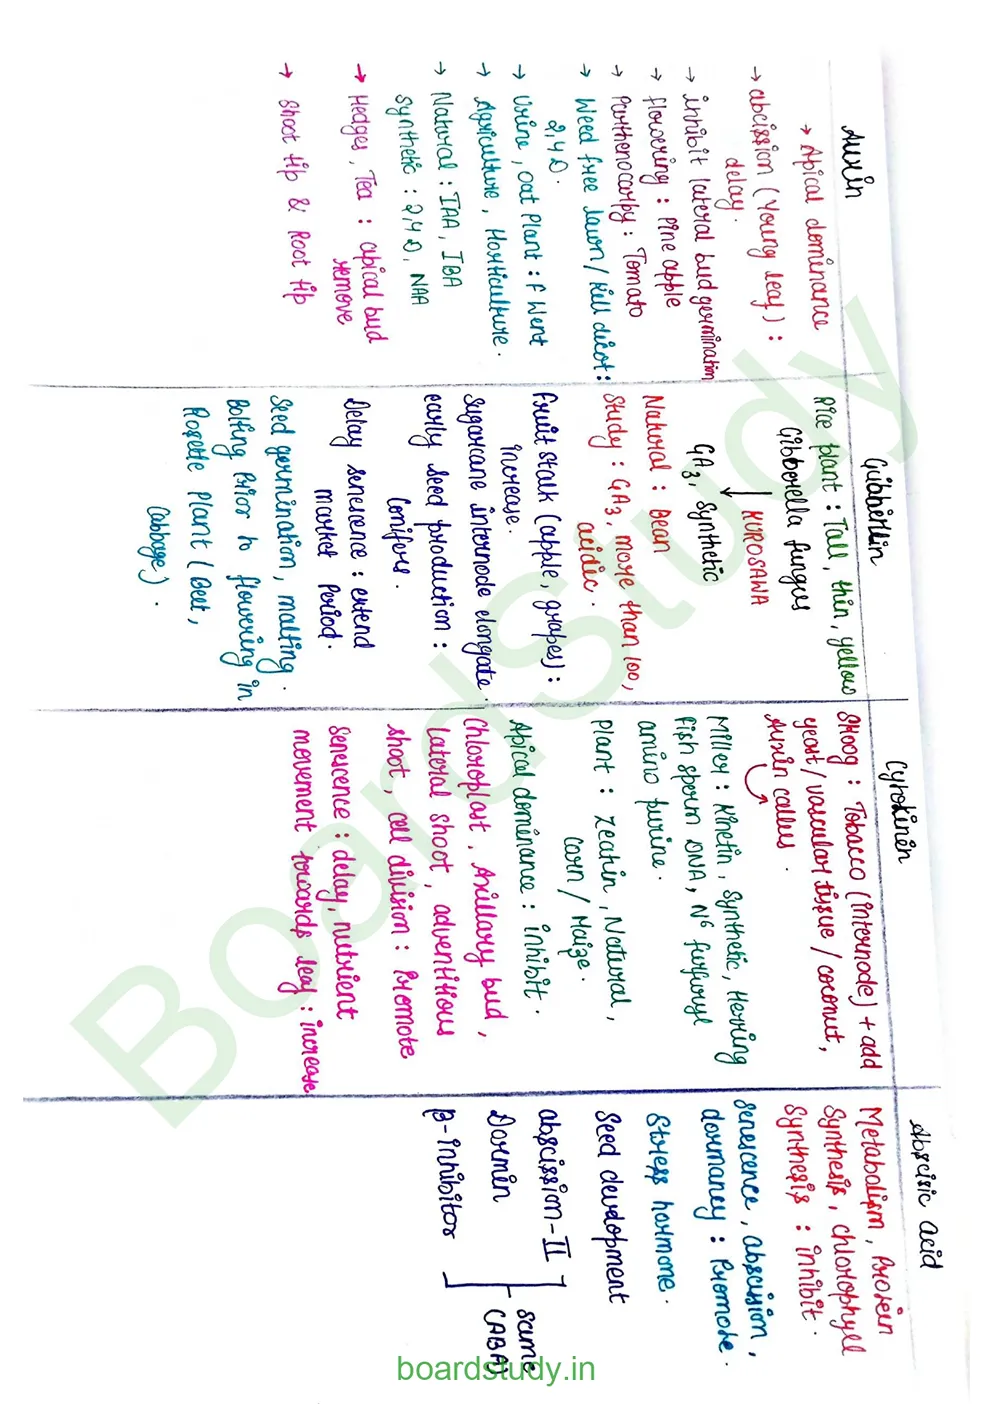 Auxin
→ Apical dominance
→ abcission (Young leaf) :
delay.
→ inhibit lateral bud germination
→ flowering : Pine apple
→ Parthenocarby : Tomato
→ Weed free lawn/kill dicot :
2,4 D.
→ Urine, oat Plant : F Went
→ Agriculture, Horticulture.
→ Natural : IAA, IBA
Synthetic : 2,4 D, NAA
→ Hedges, Tea : apical bud
remove
→ Shoot tip & Root tip
Gibberllin
Rice plant : Tall, thin, yellow
Gibberella fungus
↓ KUROSAWA
GA3, Synthetic
Natural : Bean
Study : GA3, more than 100,
acidic.
Fruit stalk (apple, grapes) :
increase.
Sugarcane internode elongate.
early seed production :
Conifers.
Delay senescence : extend
market Period.
Seed germination, malting.
Bolting Prior to flowering in
Rosette Plant (Beet,
Cabbage).
Cytokinin
Skoog : Tobacco (internode) + add
yeast/vascular tissue/coconut,
Auxin callus.
Miller : Kinetin, Synthetic, Herring
fish sperm DNA, N6 furfuryl
amino purine.
Plant : Zeatin, Natural,
Corn/Maize.
Apical dominance : inhibit.
Chloroplast, Axillary bud,
Lateral shoot, adventitious
shoot, cell division : Promote
Senescence : delay, nutrient
movement towards leaf : increase
Abscisic acid
Metabolism, Protein
Synthesis, chlorophyll
Synthesis : inhibit.
Senescence, abscission,
dormancy : Promote.
Stress hormone.
Seed development
abscission-II
Dormin
B-inhibitor
same
(ABA)
BoardStudy
boardstudy.in